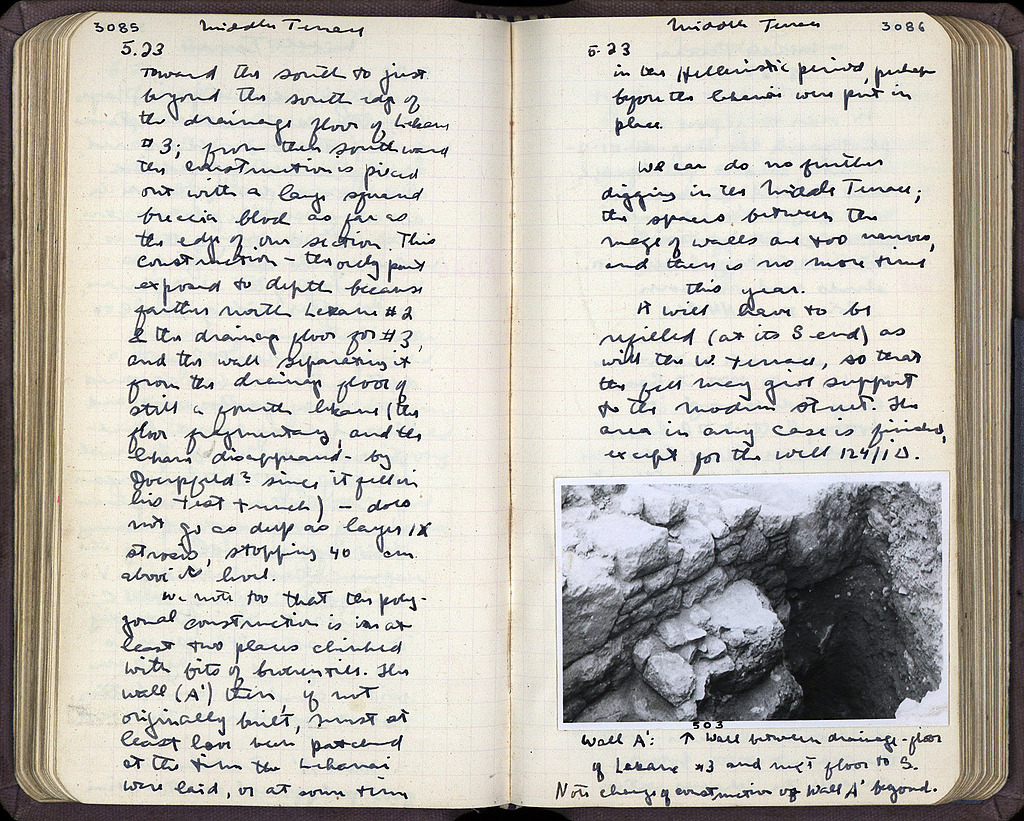 3085 Middle Terrace
5.23
toward the south to just
beyond the south edge of
the drainage floor of Lekane
#3; from then southward
the construction is pieced
out with a large squared
breccia block as far as
the edge of our section. This
construction – the only part
exposed to depth because
farther north Lekane #2
& the drainage floor for #3,
and the wall separating it
from the drainage floor of
still a fourth lekane (the
floor fragmentary, and the
lekane disappeared - by
Doerpfeld? since it fell in
his test trench) – does
not go as deep as layer IX
stroses, stopping 40 cm.
above its level.
We note too that the poly-
gonal construction is in at
least two places chinked
with bits of broken tiles. The
wall (A') then, if not
originally built, must at
least have been patched
at the time the Lekanai
were laid, or at some time
Middle Terrace 3086
5-23
in the Hellenistic period, perhaps
before the lekanai were put in
place.
We can do no further
digging in the Middle Terrace;
the spaces between the
maze of walls are too narrow,
and there is no more time
this year.
It will have to be
refilled (at its S end) as
will the W. Terrace, so that
the fill may give support
to the modern struct. The
area in any case is finished,
except for the well 124/1Δ.
503
Wall A': ↑ Wall between drainage-floor
of Lekane #3 and next floor to S.
Note change of construction of Wall A' beyond.